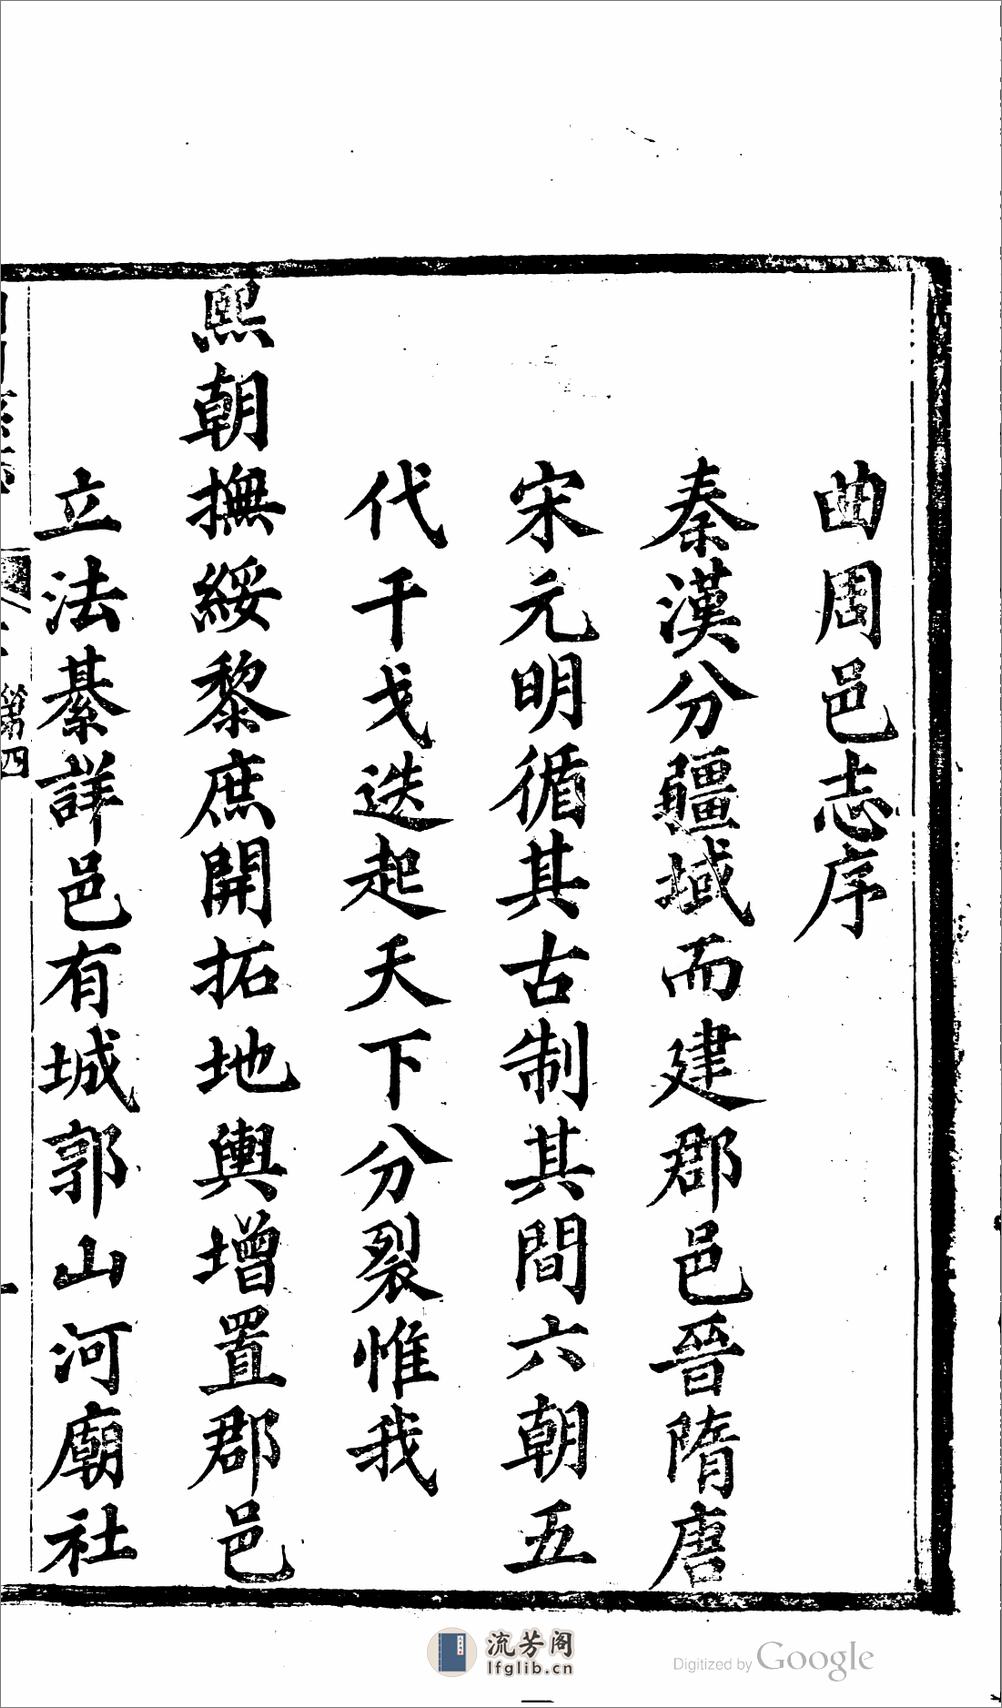 曲周邑志序
秦漢分疆域而建郡邑晉隋唐
宋元明循其古制其間六朝五
代干戈迭起天下分裂惟我
熙朝撫綏黎庶開拓地輿增置郡邑
立法綦詳邑有城郭山河廟社
第四
流芳阁
lfglib.cn
Digitized by Google